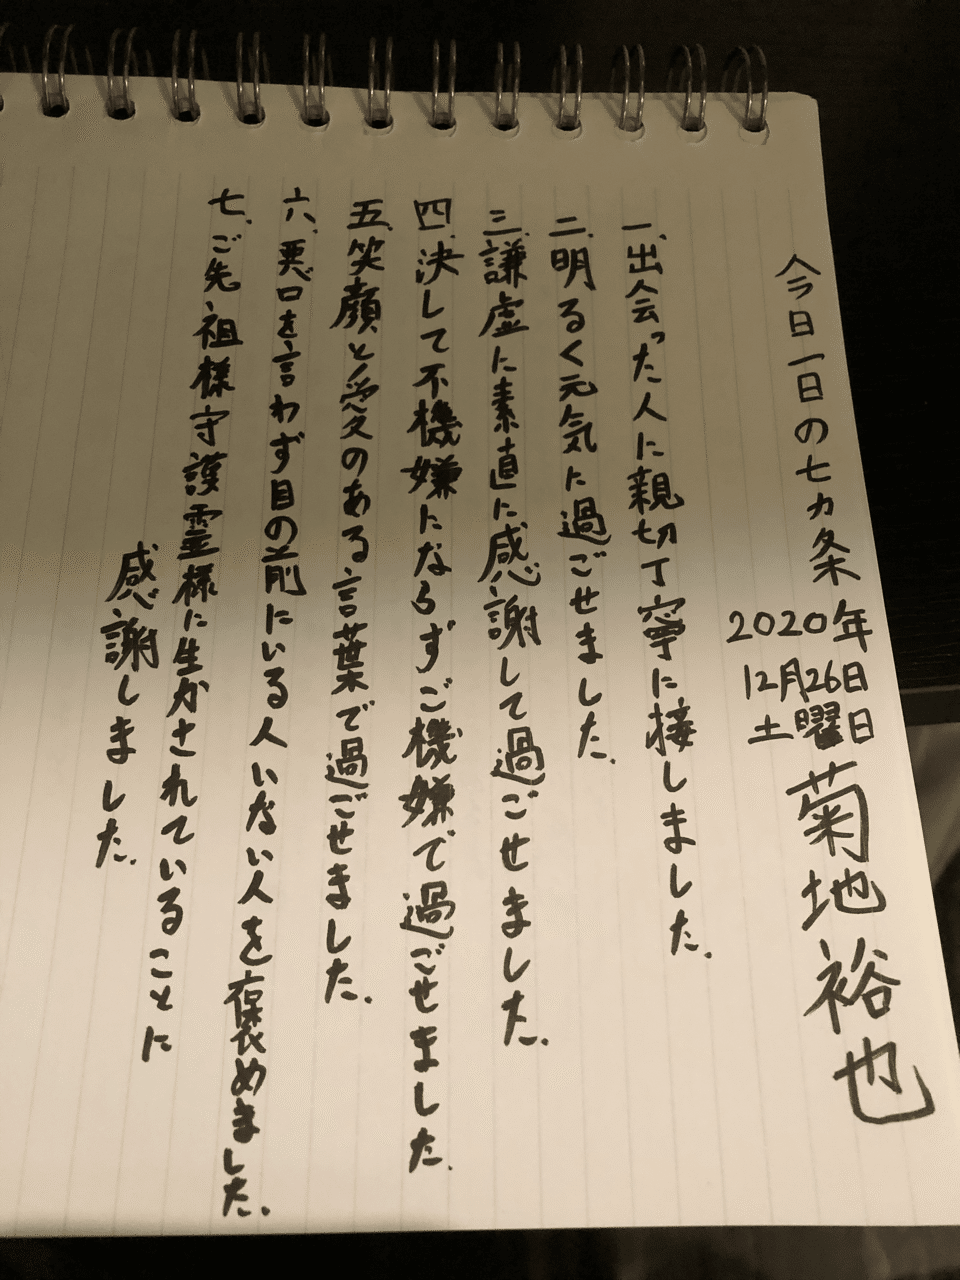 今日一日の七カ条
2020年
12月26日
土曜日
菊地裕也
一、出会った人に親切丁寧に接しました。
二、明るく元気に過ごせました。
三、謙虚に素直に感謝して過ごせました。
四、決して不機嫌にならずご機嫌で過ごせました。
五、笑顔と愛のある言葉で過ごせました。
六、悪口を言わず目の前にいる人いない人を褒めました。
七、ご先祖様守護霊様に生かされていることに
感謝しました。